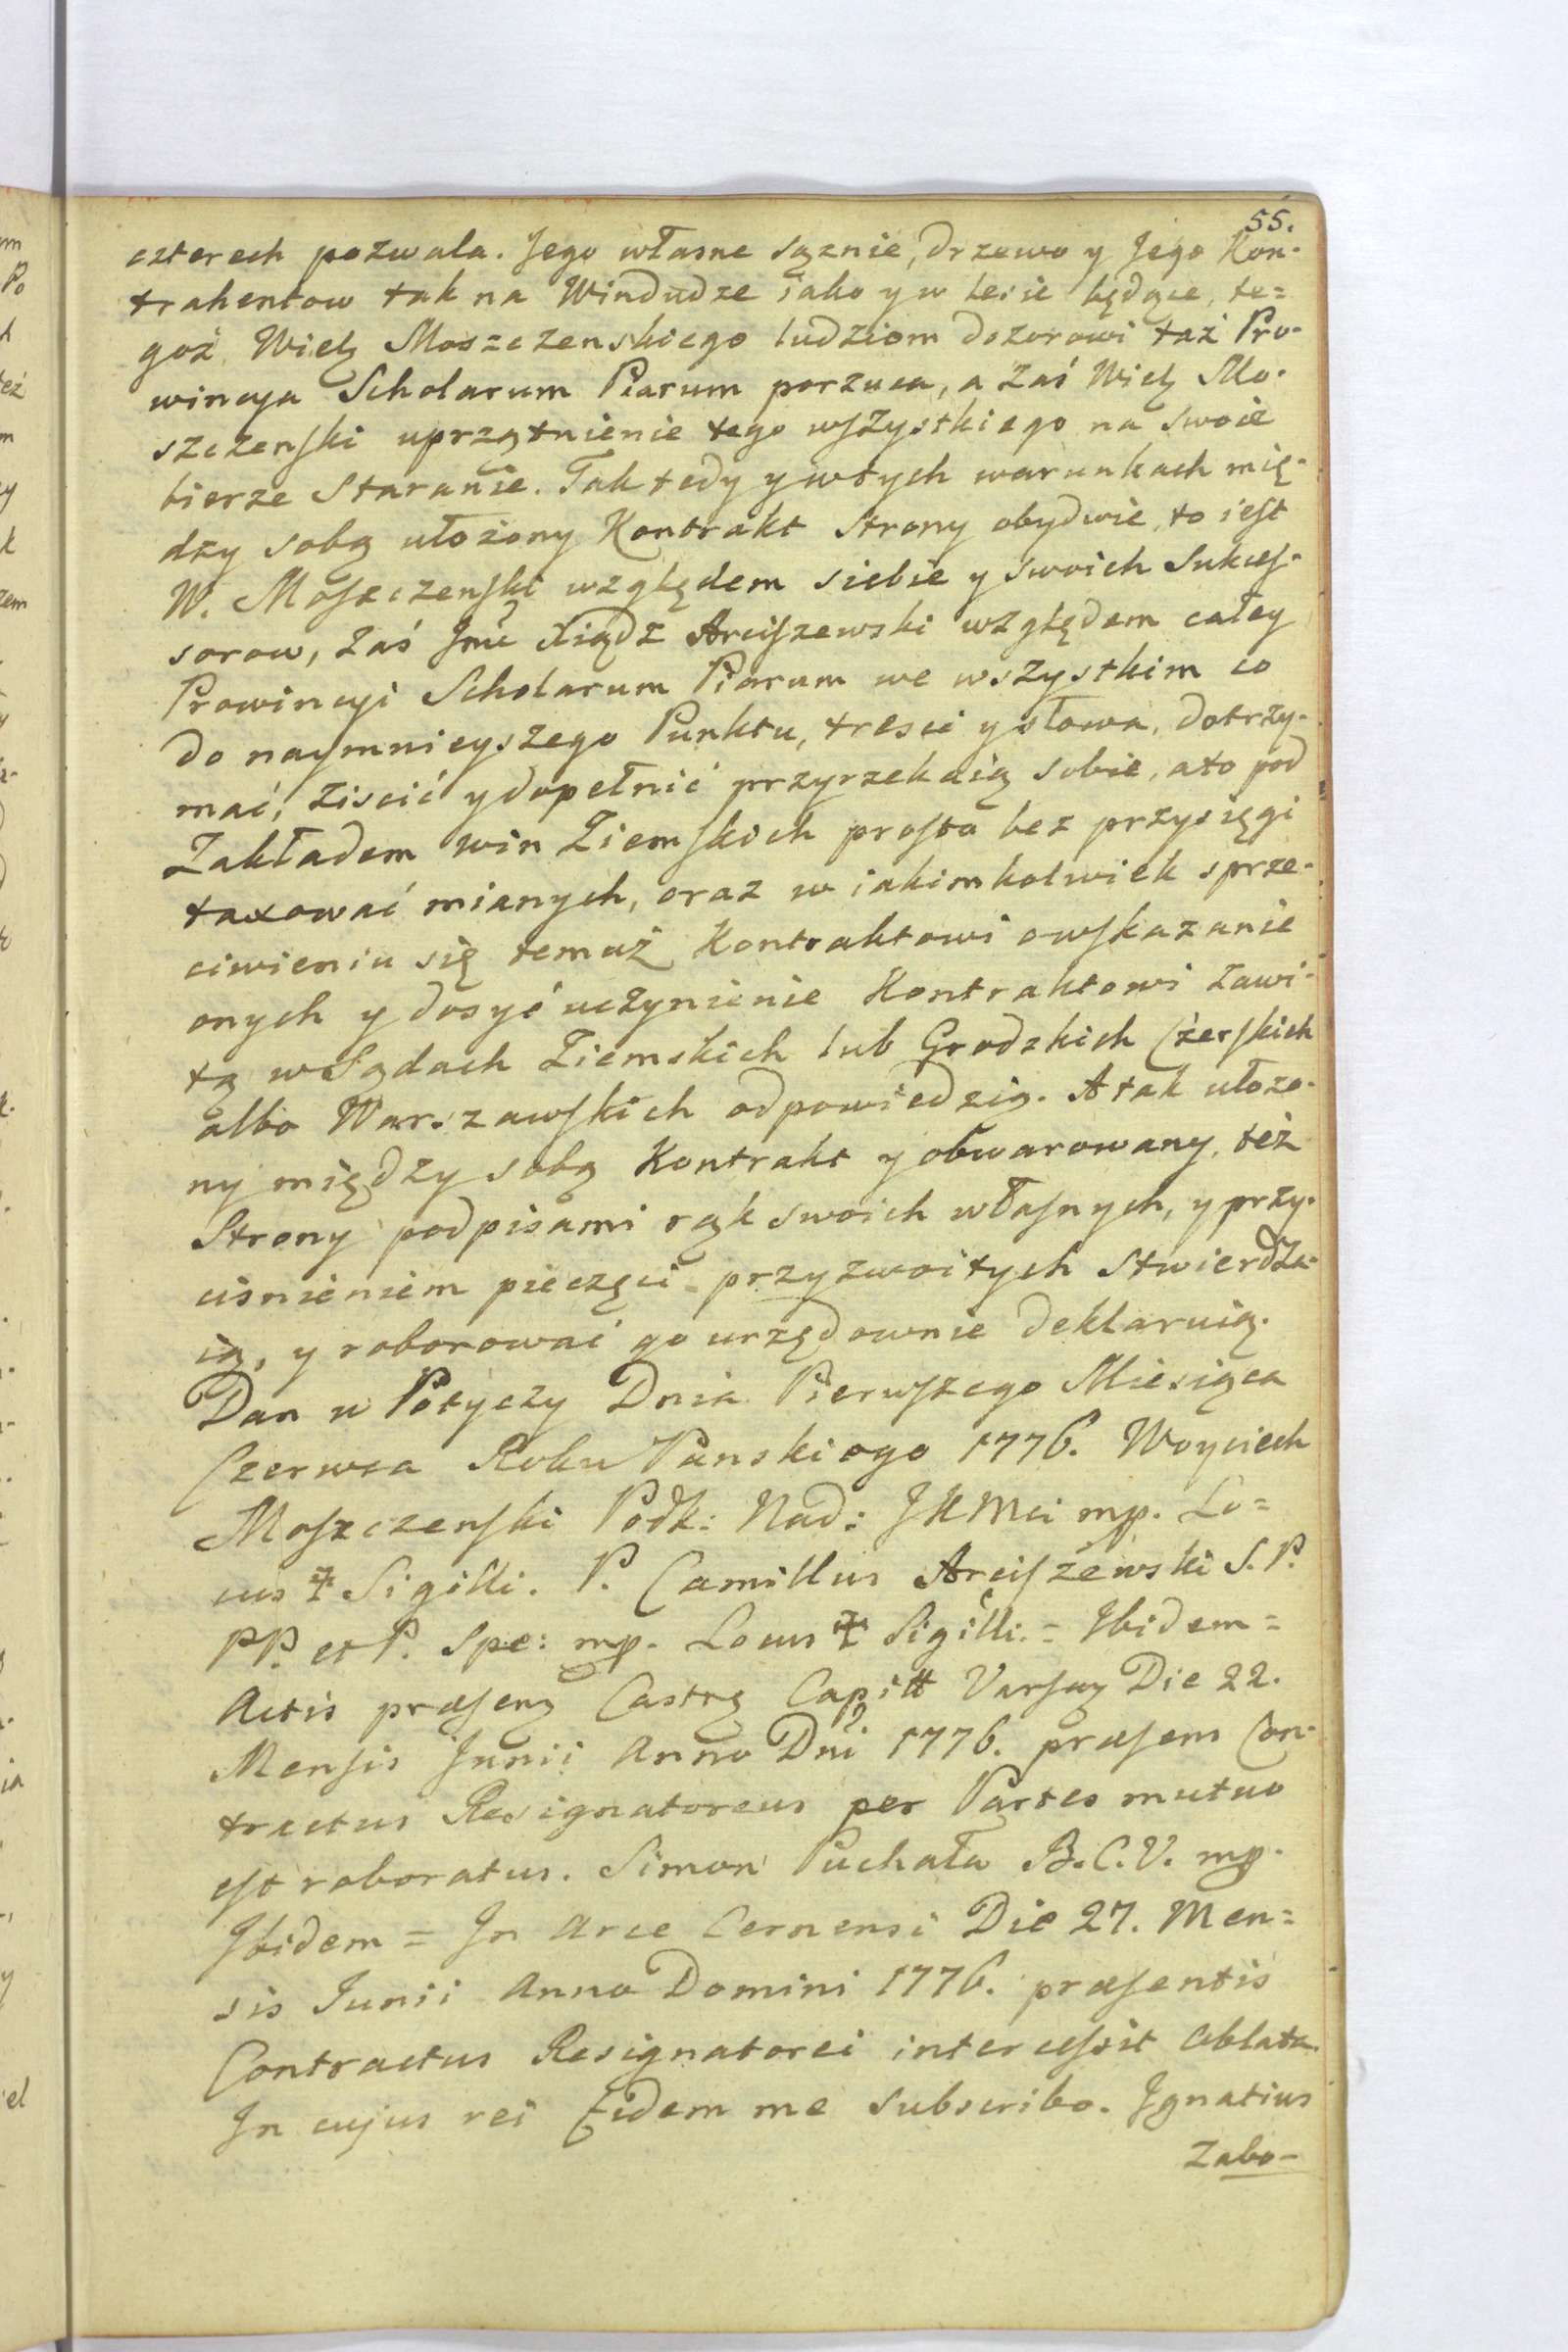 55.
czterech pozwala. Jego własne sążnie, drzewo y Jego Kon-
trahentow tak na Windudze iako y w lesie będące, te=
goż Wielg Moszczenskiego ludziom dozorowi taż Pro-
wincya Scholarum Piarum porzuca, a zaś Wielg Mo-
szczenski uprzątnienie tego wszystkiego na swoie
bierze Staranie. Tak tedy y w tych warunkach mię-
dzy sobą ułożony Kontrakt Strony obydwie, to iest
W. Moszczenski względem siebie y swoich Sukces-
sorow, zaś Jmć Xiądz Arciszewski względem całey
Prowincyi Scholarum Piarum we wszystkim co
do naymnieyszego Punktu, tresci y słowa, dotrzy-
mać, ziscić y dopełnić przyrzekaią sobie, a to pod
Zakładem win Ziemskich prosta bez przysięgi
taxować mianych, oraz w iakimkolwiek sprze-
ciwieniu się temuż Kontraktowi o wskazanie
onych y dosyć uczynienie Kontraktowi zawi-
tą w Sądach Ziemskich lub Grodzkich Czerskich
albo Warszawskich odpowiedzią. A tak ułożo-
ny między sobą Kontrakt y obwarowany, też
Strony podpisami rąk swoich własnych, y przy-
cisnieniem pieczęci przyzwoitych stwierdza-
ią, y roborować go urzędownie deklaruią.
Dan w Potyczy Dnia Pierwszego Miesiąca
Czerwca Roku Panskiego 1776. Woyciech
Moszczenski Podk: Nad: JKMci mp. Lo=
cus ‡ Sigilli. P. Camillus Arciszewski S. P.
PP. et P. Spe: mp. Locus ‡ Sigilli. = Ibidem =
Actis præsenę Castrę Capitt Varsaę Die 22.
Mensis Junii Anno Dni 1776. præsens Con-
tractus Resignatoreus per Partes mutuo
est roboratus. Simon Puchała B. C. V. mp.
Ibidem = In Arce Cernensi Die 27. Men=
sis Iunii Anno Domini 1776. præsentis
Contractus Resignatorei intercessit Oblata.
In cujus rei Fidem me subscribo. Ignatius
Zabo-